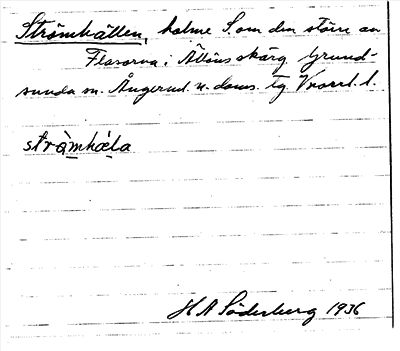 Strömhällen, holme S. om den större av
Flasorna i Ällös skärg. Grund-
sunda sn. Ångerml. n. doms. tg. Vnorrl. l.
stràmhǽla
H A Söderberg 1936